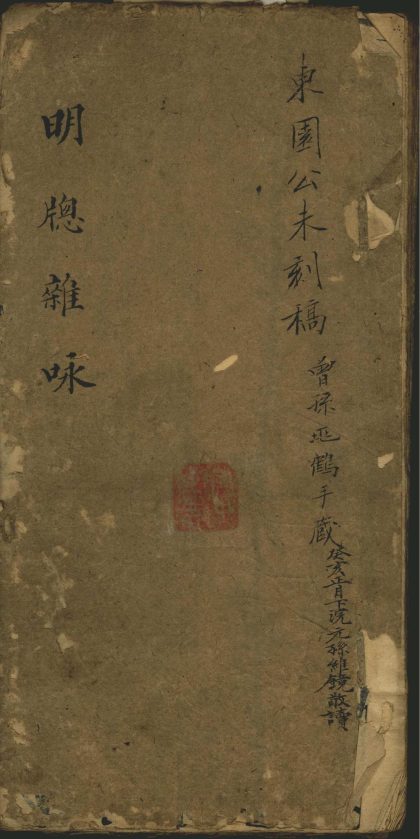 東園公未刻稿 曾孫延鶴手藏 癸亥正月下浣元孫維鏡敬讀
明牕雜咏